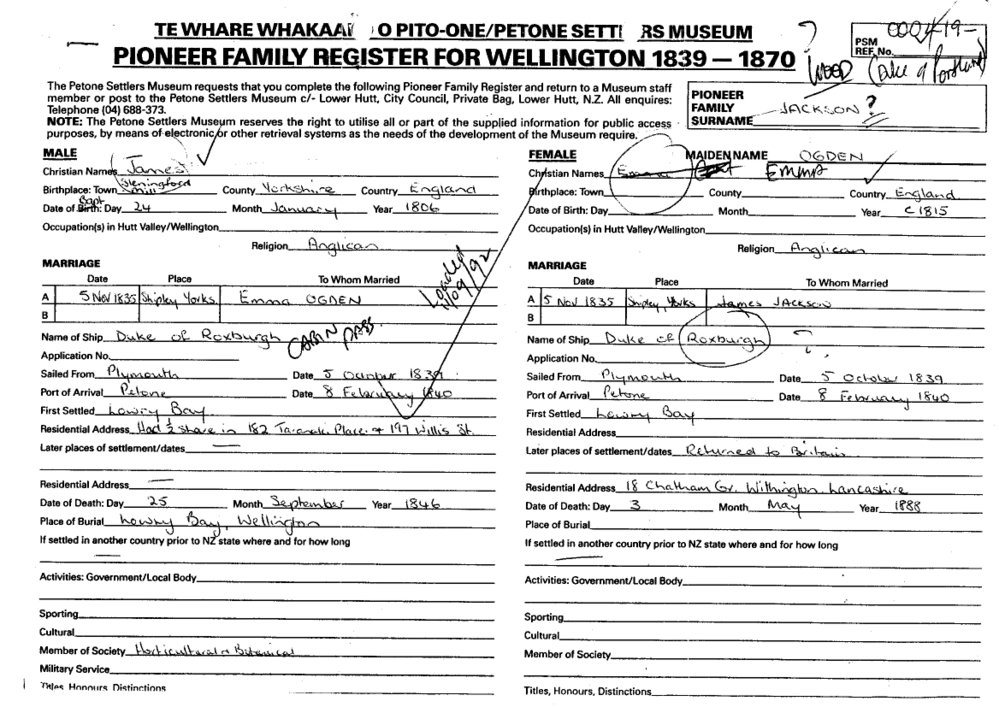 TE WHARE WHAKAA O PITO-ONE/PETONE SETTL RS MUSEUM
PIONEER FAMILY REGISTER FOR WELLINGTON 1839 — 1870
?
PSM
REF No. 000419-
WOOD (Duke of Portland)
The Petone Settlers Museum requests that you complete the following Pioneer Family Register and return to a Museum staff
member or post to the Petone Settlers Museum c/- Lower Hutt, City Council, Private Bag, Lower Hutt, N.Z. All enquires:
Telephone (04) 688-373.
NOTE: The Petone Settlers Museum reserves the right to utilise all or part of the supplied information for public access
purposes, by means of electronic or other retrieval systems as the needs of the development of the Museum require.
PIONEER
FAMILY
SURNAME JACKSON ?
MALE
Christian Names James
Birthplace: Town County Yorkshire Country England
Date of Birth: Bapt Day 24 Month January Year 1806
Occupation(s) in Hutt Valley/Wellington
Religion Anglican
MARRIAGE
Date Place To Whom Married
A 5 Nov 1835 Shipley Yorks. Emma OGDEN
B
Loaded
/09/92
Name of Ship Duke of Roxburgh
CABIN PASS
Application No.
Sailed From Plymouth Date 5 October 1839
Port of Arrival Petone Date 8 February 1840
First Settled Lowry Bay
Residential Address Had ½ share in 182 Taranaki Place & 197 Willis St.
Later places of settlement/dates
Residential Address
Date of Death: Day 25 Month September Year 1846
Place of Burial Lowry Bay, Wellington
If settled in another country prior to NZ state where and for how long
Activities: Government/Local Body
Sporting
Cultural
Member of Society Horticultural & Botanical
Military Service
Titles, Honours, Distinctions
FEMALE MAIDEN NAME OGDEN
Christian Names Emma EMMA
Birthplace: Town County Country England
Date of Birth: Day Month Year C 1815
Occupation(s) in Hutt Valley/Wellington
Religion Anglican
MARRIAGE
Date Place To Whom Married
A 5 Nov 1835 Shipley, Yorks James JACKSON
B
Name of Ship Duke of Roxburgh ?
Application No.
Sailed From Plymouth Date 5 October 1839
Port of Arrival Petone Date 8 February 1840
First Settled Lowry Bay
Residential Address
Later places of settlement/dates Returned to Britain
Residential Address 18 Chatham Gr. Withington Lancashire
Date of Death: Day 3 Month May Year 1888
Place of Burial
If settled in another country prior to NZ state where and for how long
Activities: Government/Local Body
Sporting
Cultural
Member of Society
Titles, Honours, Distinctions